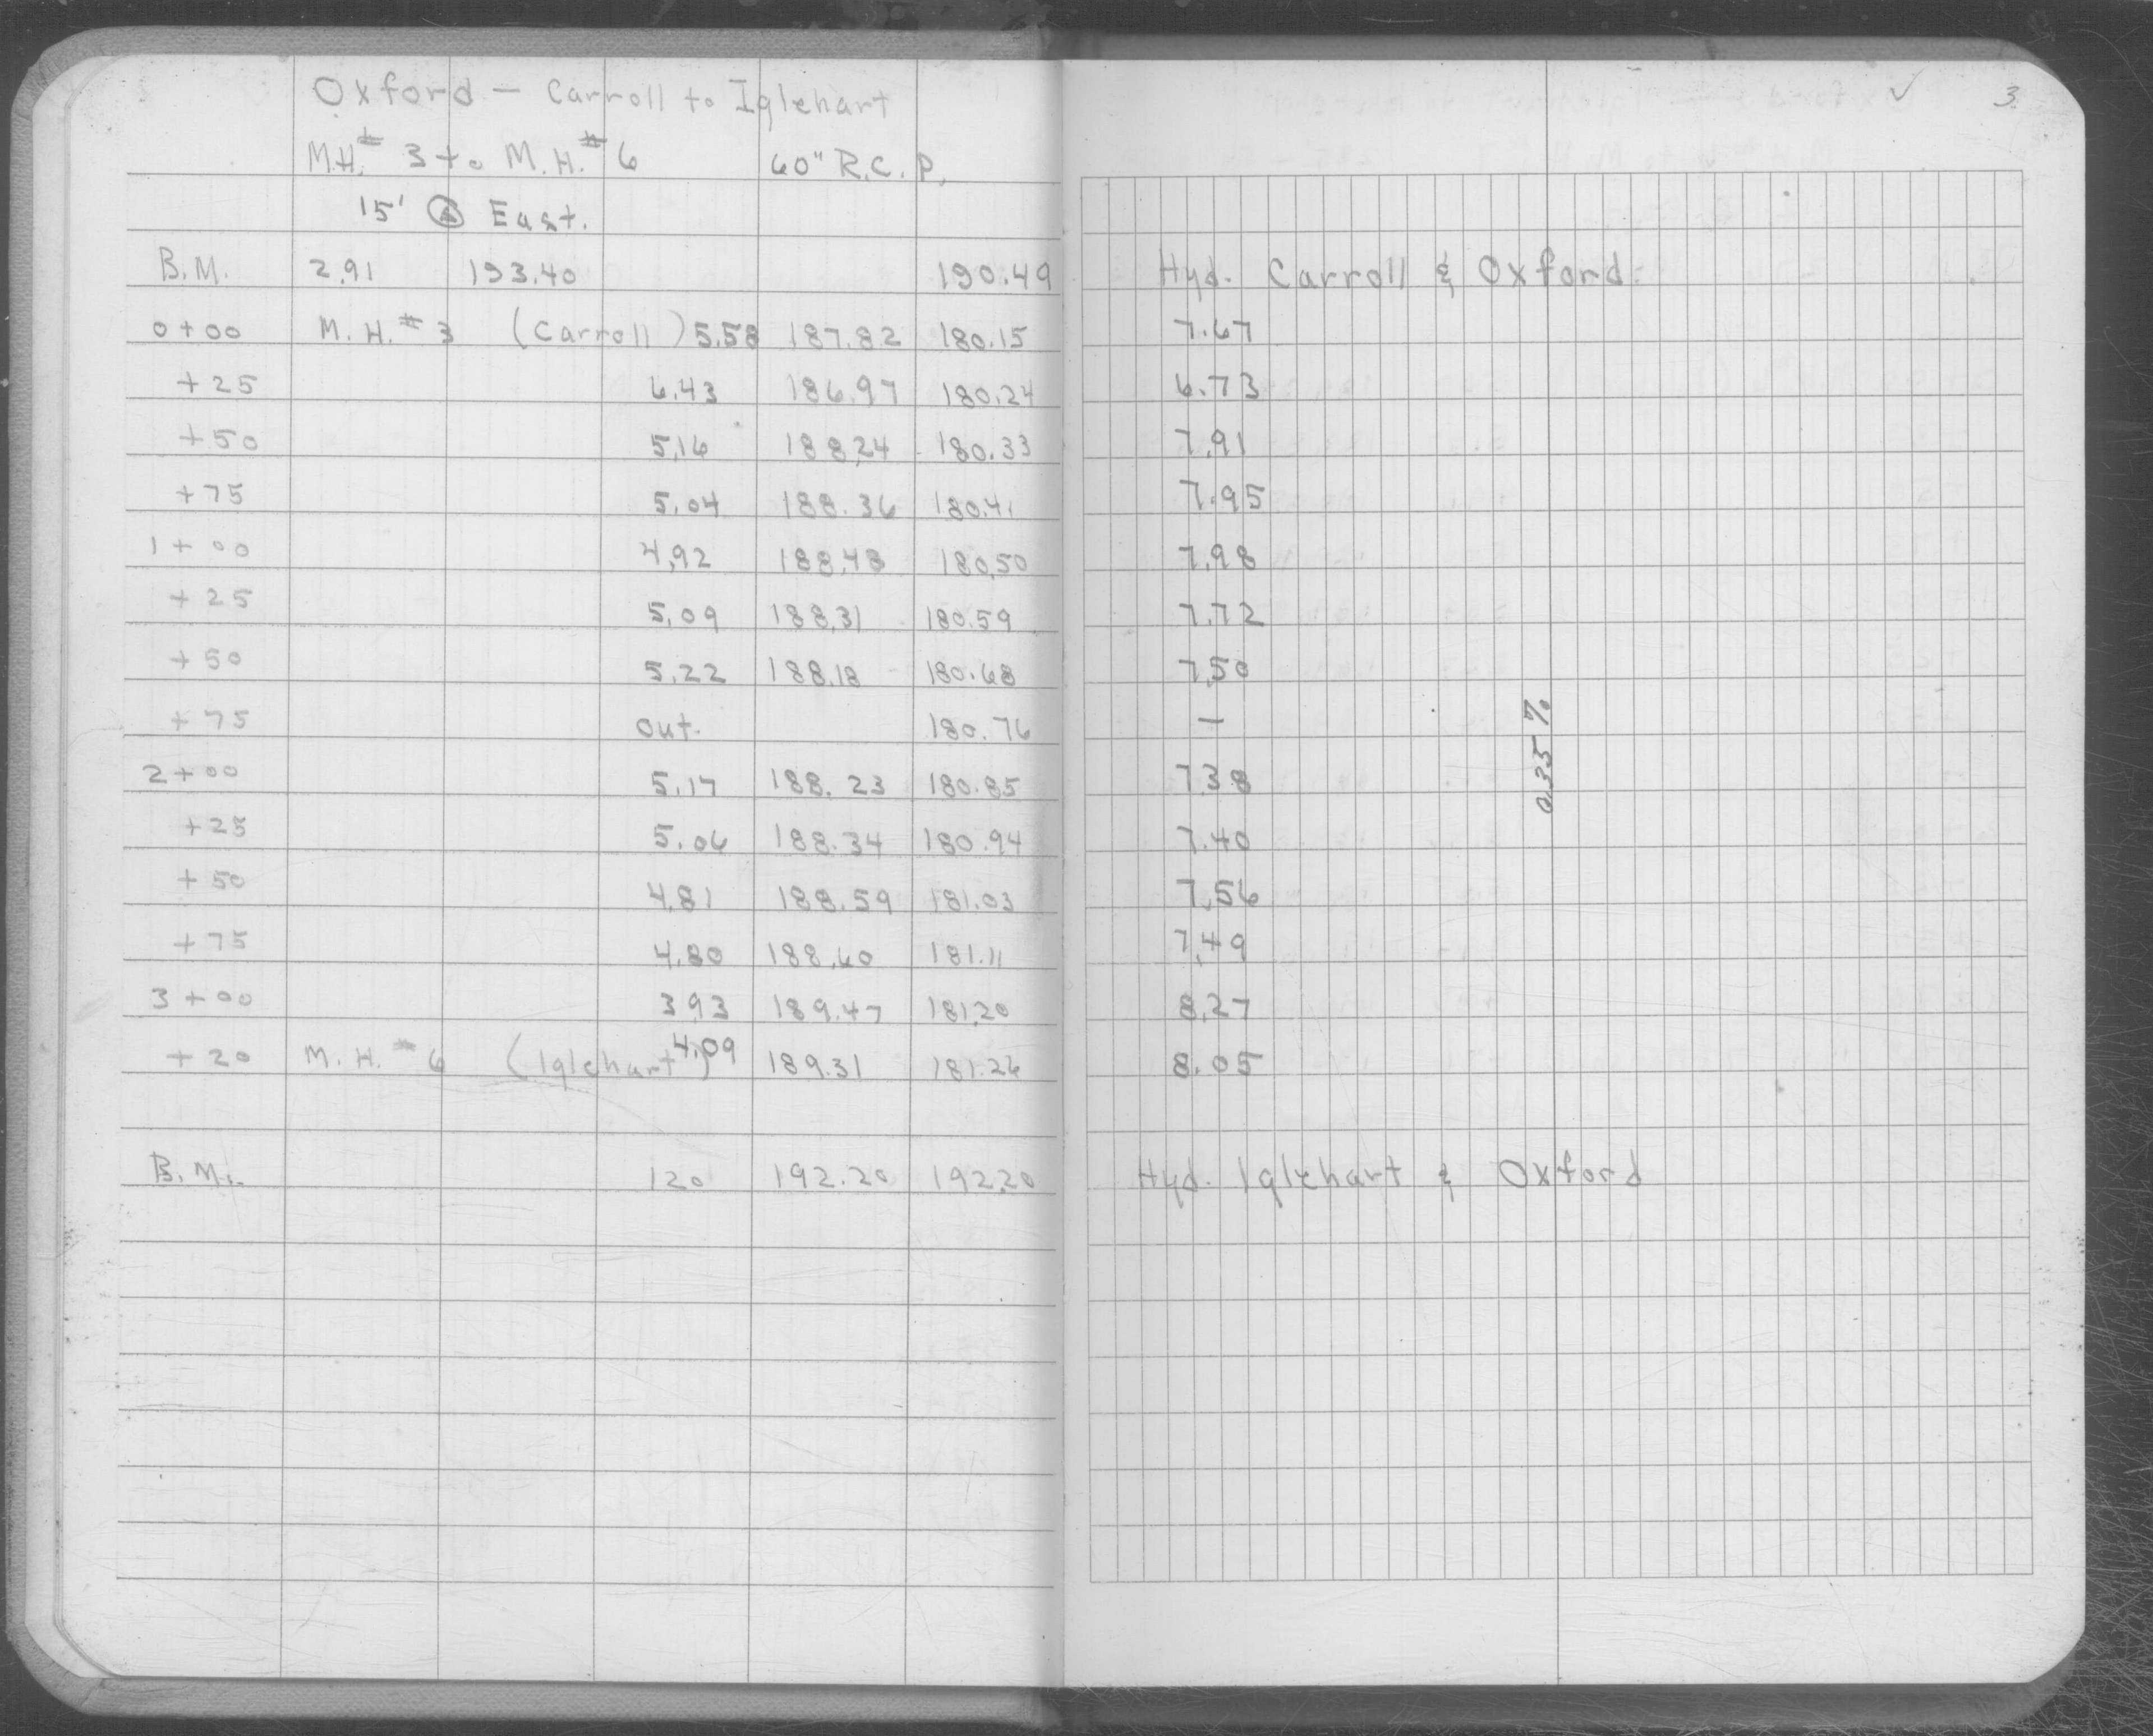 ✓ 3.
Oxford — Carroll to Iglehart
M.H.# 3 to M.H.# 6 60" R.C.P.
15' @ East.
B.M. 2.91 193.40 190.49 Hyd. Carroll & Oxford.
0+00 M.H.# 3 (Carroll) 5.58 187.82 180.15 7.67
+25 6.43 186.97 180.24 6.73
+50 5.16 188.24 180.33 7.91
+75 5.04 188.36 180.41 7.95
1+00 4.92 188.48 180.50 7.98
+25 5.09 188.31 180.59 7.72
+50 5.22 188.18 180.68 7.50
+75 out. 180.76 —
2+00 5.17 188.23 180.85 7.38
+25 5.06 188.34 180.94 7.40
+50 4.81 188.59 181.03 7.56
+75 4.80 188.60 181.11 7.49
3+00 3.93 189.47 181.20 8.27
+20 M.H.# 6 (Iglehart) 4.09 189.31 181.26 8.05
0.35 %
B.M. 120 192.20 192.20 Hyd. Iglehart & Oxford